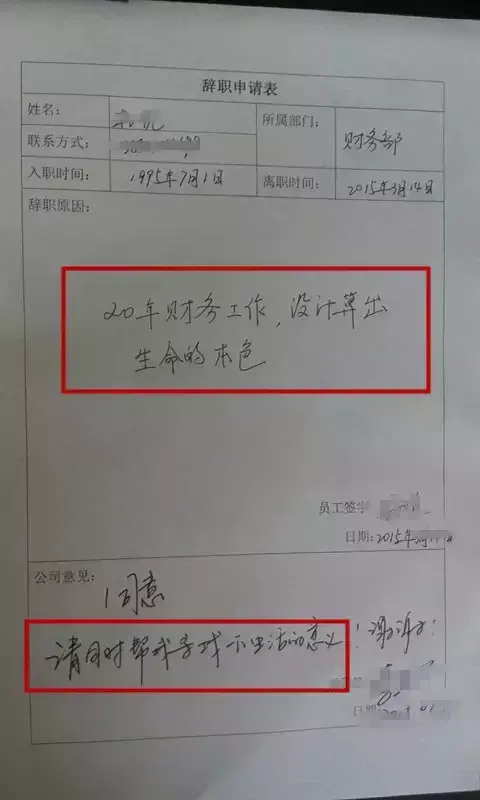 辞职申请表
姓名:
所属部门:
财务部
联系方式:
入职时间:
1995年7月1日
离职时间:
2015年3月14日
辞职原因:
20年财务工作,没计算出
生命的本色
员工签字
日期:2015年
公司意见:
同意
请同时帮我寻找一下生活的意义!谢谢!
日期: